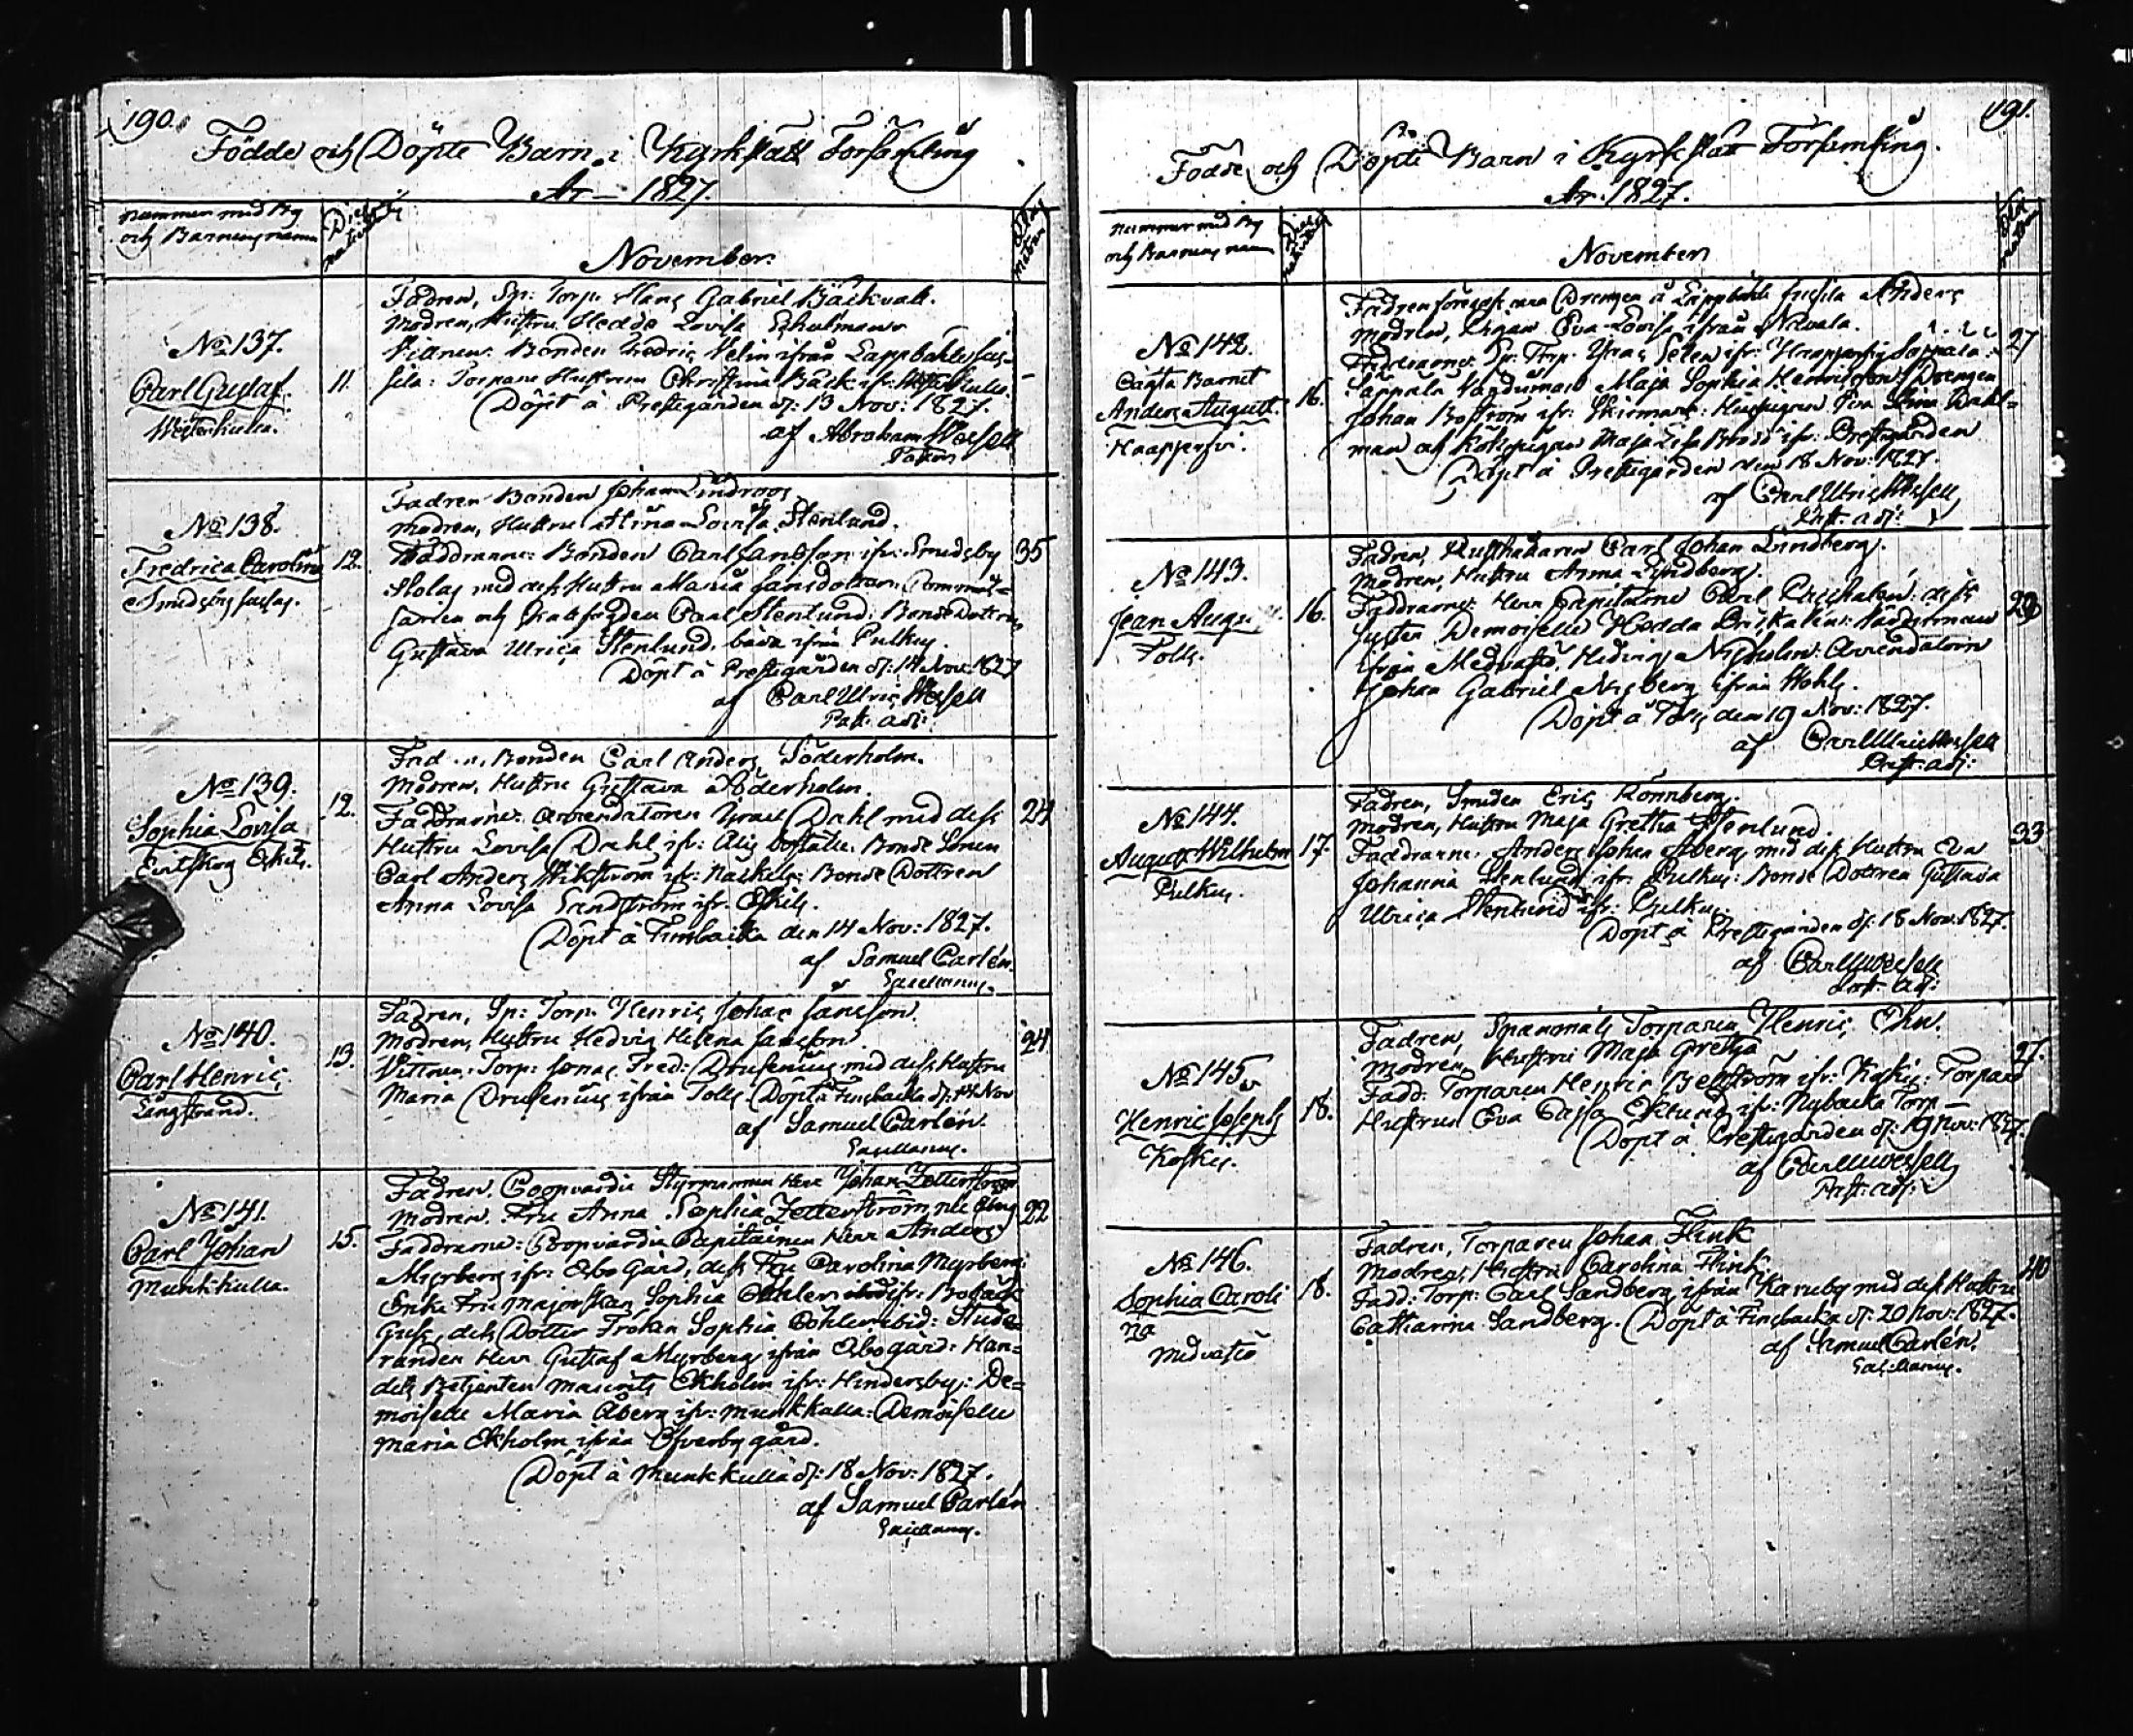 190.
Födde och Döpte Barn i Kyrkslätt Församling
År 1827.
Nummer med By
och Barnens namn
Dies
nativitatis
November.
Ætas
matris
No 137.
Carl Gustaf.
11.
Fadren, Sp: Torp. Hans Gabriel Bäckvall.
Modren, Hustru Hedda Lovisa
Vittnen: Bonden Fredric Velin ifrån Lappböhle
Torpare Hustrun Christina Bäck ifr:
Döpt å Prestegården d: 13 Nov: 1827.
af Abraham Wessell
Pastor
No 138.
Fredrica Carolina
Smedsby
12.
Fadren Bonden Johan Lindroos
Modren, Hustru Lovisa Stenlund.
Faddrarne: Bonden Carl Jansson ifr: Smedsby
Skolas med dess Hustru Maria Jansdotter
och Carl Stenlund: Bonde Dottren
Gustava Ulrica Stenlund. båda ifrån Pulkus
Döpt å Prestegården d: 14 Nov: 1827
af Carl Ulric Wessell
Past: adj:
35
No 139.
Sophia Lovisa
Evitskog Eskils.
12.
Bonden Carl Anders Söderholm.
Modren, Hustru Gustava Söderholm.
Faddrarne: Arrendatoren Israel Dahl med dess
Hustru Lovisa Dahl ifr: Boställe: Bonde Sonen
Carl Anders Wikström ifr: Näskils: Bonde Dottren
Anna Lovisa Sandström ifr. Eskils.
Döpt å Finsbacka den 14 Nov: 1827.
af Samuel Carlén.
Sacellanus.
24
No 140.
Carl Henric
Långstrand.
13.
Fadren, Sp: Torp. Henric Johan Jansson.
Modren, Hustru Hedvig Helena Jansson.
Vittnen: Torp: Jonas Fred: Drusenius med dess Hustru
Maria Drusenius ifrån Tolls. Döpt å Finsbacka d: 14 Nov
af Samuel Carlén.
Sacellanus.
24
No 141.
Carl Johan
Munkkulla.
15.
Fadren. Coopvardie Styrmannen Herr Johan Zetterström
Modren. Fru Anna Sophia Zetterström, née
Faddrarne: Coopvardie Capitainen Herr Anders
Myrberg ifr: Obo Gård, dess Fru Carolina Myrberg:
Enke Fru Majorskan Sophia ifr: Bobäck
dess Dotter Fröken Sophia ibid: Stude-
randen Herr Gustaf Myrberg ifrån Obogård: Han-
dels Betjenten Maurits Ekholm ifr: Hindersby: De-
moiselle Maria Åberg ifr: Munkkulla: Demoiselle
Maria Ekholm ifrån Öfverby gård.
Döpt å Munkkulla d: 18 Nov: 1827.
af Samuel Carlén
Sacellanus.
22
191.
Födde och Döpte Barn i Kyrkslätt Församling.
År 1827.
Nummer med By
och Barnens namn
November
No 142.
Oägta Barnet
Anders August.
Haapjerfvi.
16.
Fadren föregifves vara Drengen å Lappböhle Anders
Modren, Pigan Eva Lovisa ifrån Navala.
Faddrarne: Sp: Torp. ifr: Haapjerfvi
Maja Sophia Henricson: Drengen
Johan Boström ifr:
och Kökspigan Maja Lisa ifr: Prestegården
Döpt å Prestegården den 18 Nov: 1827.
af Carl Ulric Wessell
Past: adj:
27
No 143.
Jean August.
Tolls.
16.
Fadren, Rusthållaren Carl Johan Lindberg.
Modren, Hustru Anna Lindberg.
Faddrarne: Herr Capitaine Carl dess
Syster Demoiselle Hedda
ifrån Medvastö, Hedvig Nyholm: Arrendatorn
Johan Gabriel Nyberg ifrån Hohls.
Döpt å Tolls den 19 Nov: 1827.
af Carl Ulric Wessell
Past: adj:
No 144.
August Wilhelm
Pulkus.
17.
Fadren, Smeden Eric Rönnberg.
Modren, Hustru Maja Gretha Stenlund.
Faddrarne: Anders Johan Åberg med dess Hustru Eva
Johanna Stenlund ifr: Pulkus: Bonde Dottren Gustava
Ulrica Stenlund ifr: Pulkus.
Döpt å Prestegården d: 18 Nov: 1827.
af Carl U Wessell
Past: adj:
33
No 145.
Henric Joseph
Koskis.
18.
Fadren, Torparen Henric Ohn.
Modren, Hustru Maja Gretha
Fadd: Torparen Henric ifr: Koskis: Torpare
Hustrun Eva Cajsa Eklund ifr: Nybacka Torp
Döpt å Prestegården d: 19 Nov: 1827.
af Carl U Wessell
Past: adj:
27.
No 146.
Sophia Caroli
na
Medvastö
18.
Fadren, Torparen Johan Flink
Modren, Hustru Carolina Flink.
Fadd: Torp: Carl Sandberg ifrån Kanuby med dess Hustru
Catharina Sandberg. Döpt å Finsbacka d: 20 Nov: 1827.
af Samuel Carlén,
Sacellanus.
40